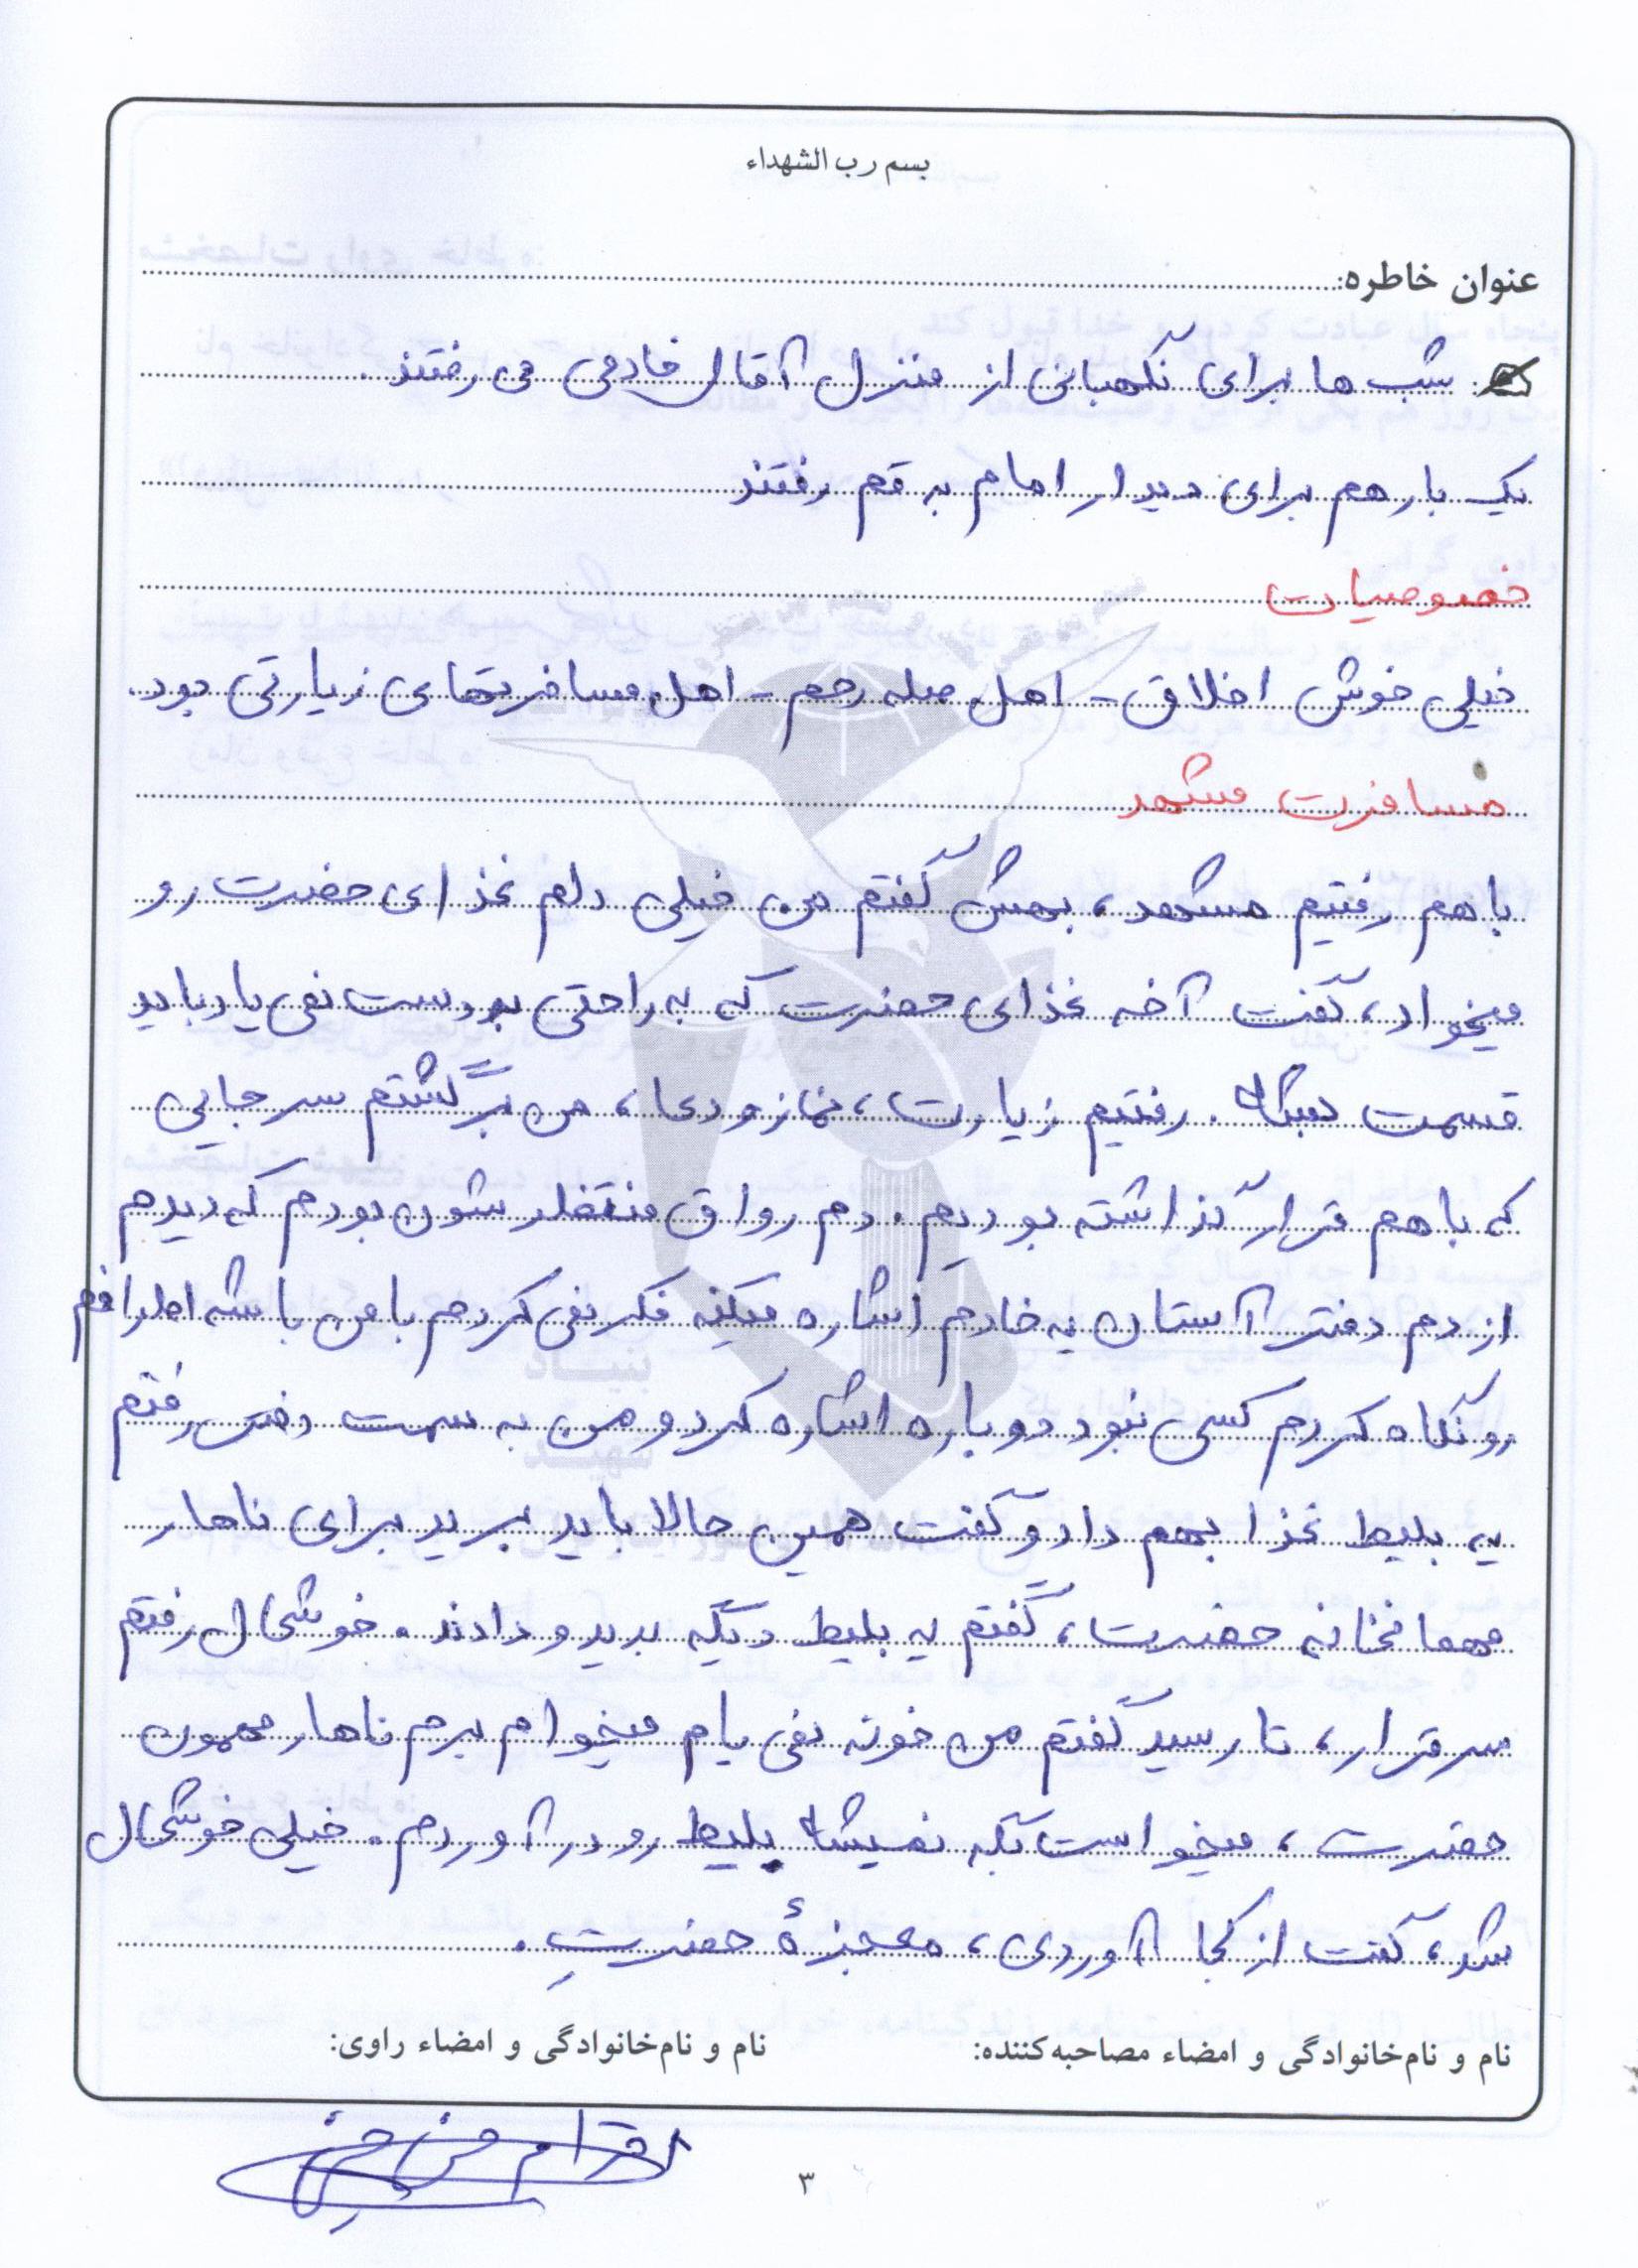 بسم رب الشهداء
عنوان خاطره:
شب ها برای نگهبانی از منزل آقای خادمی می رفتند.
یک بار هم برای دیدار امام به قم رفتند
خصوصیات
خیلی خوش اخلاق - اهل صله رحم - اهل مسافرتهای زیارتی بود.
مسافرت مشهد
با هم رفتیم مشهد، بهش گفتم من خیلی دلم غذای حضرت رو
میخواد، گفت آخه غذای حضرت که به راحتی بدست نمی یاد باید
قسمت بشه. رفتیم زیارت، نماز و دعا، من برگشتم سر جایی
که با هم قرار گذاشته بودیم. دم رواق منتظر شون بودم که دیدم
از دم دفتر آستان یه خادم اشاره میکنه فکر نمی کردم با من باشه اطرافم
رو نگاه کردم کسی نبود دوباره اشاره کرد و من به سمت دفتر رفتم
یه بلیط غذا بهم داد و گفت همین حالا باید برید برای ناهار
مهمانخانه حضرت، گفتم یه بلیط دیگه بدید و دادند. خوشحال رفتم
سر قرار، تا رسید گفتم من خونه نمی یام میخوام برم ناهار مهمون
حضرت، میخواست بگه نمیشه بلیط رو در آوردم. خیلی خوشحال
شد، گفت از کجا آوردی، معجزهٔ حضرتِ.
نام و نام‌خانوادگی و امضاء مصاحبه‌کننده: نام و نام‌خانوادگی و امضاء راوی:
۳